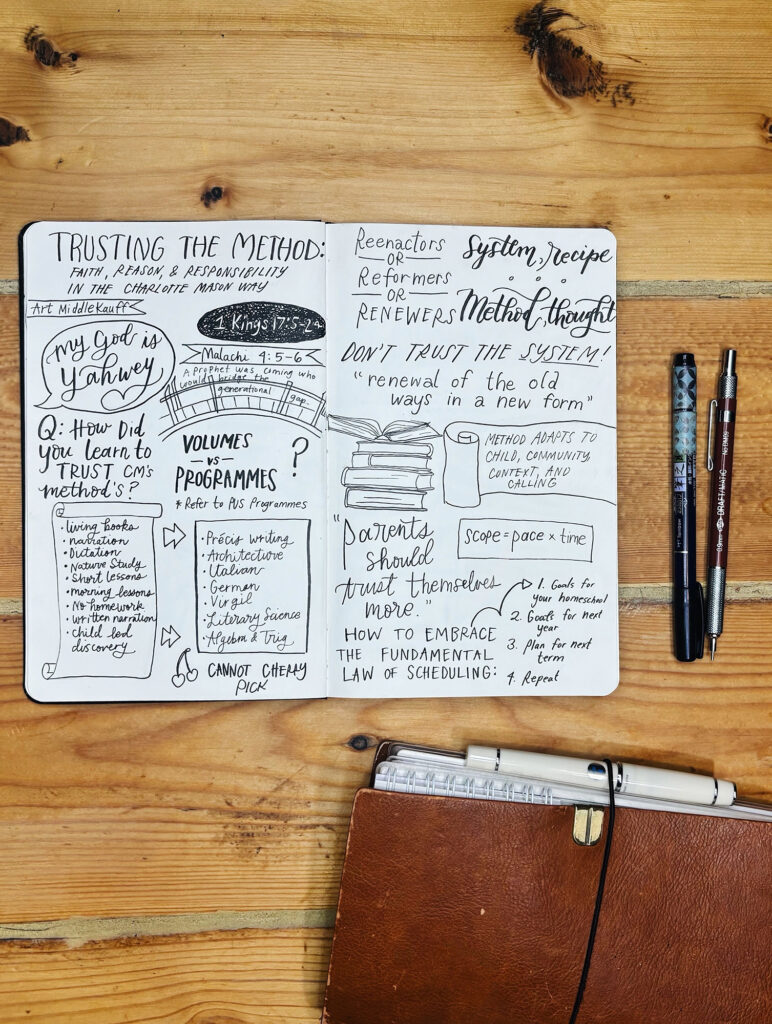 TRUSTING THE METHOD:
FAITH, REASON, & RESPONSIBILITY
IN THE CHARLOTTE MASON WAY
Art Middlekauff
1 Kings 17:5-24
My God is
Yahwey
Malachi 4:5-6
A Prophet was coming who
would bridge the
generational
gap.
Q: How Did
you learn to
TRUST CM's
method's?
VOLUMES
-VS-
PROGRAMMES
?
* Refer to PUS Programmes
• living books
• narration
• Dictation
• Nature Study
• Short lessons
• morning lessons
• No homework
• written narration
• child led
discovery
• Précis Writing
• Architective
• Italian
• German
• Virgil
• Literary Science
• Algebra & Trig
CANNOT CHERRY
PICK
Reenactors
-OR-
Reformers
-OR-
RENEWERS
System, recipe
Method, thought
DON'T TRUST THE SYSTEM!
"renewal of the old
ways in a new form"
METHOD ADAPTS TO
CHILD, COMMUNITY,
CONTEXT, AND
CALLING
"parents
should
trust themselves
more."
scope = pace × time
HOW TO EMBRACE
THE FUNDAMENTAL
LAW OF SCHEDULING:
1. Goals for
your homeschool
2. Goals for next
year
3. Plan for next
term
4. Repeat
0.9mm DRAFT/MATIC